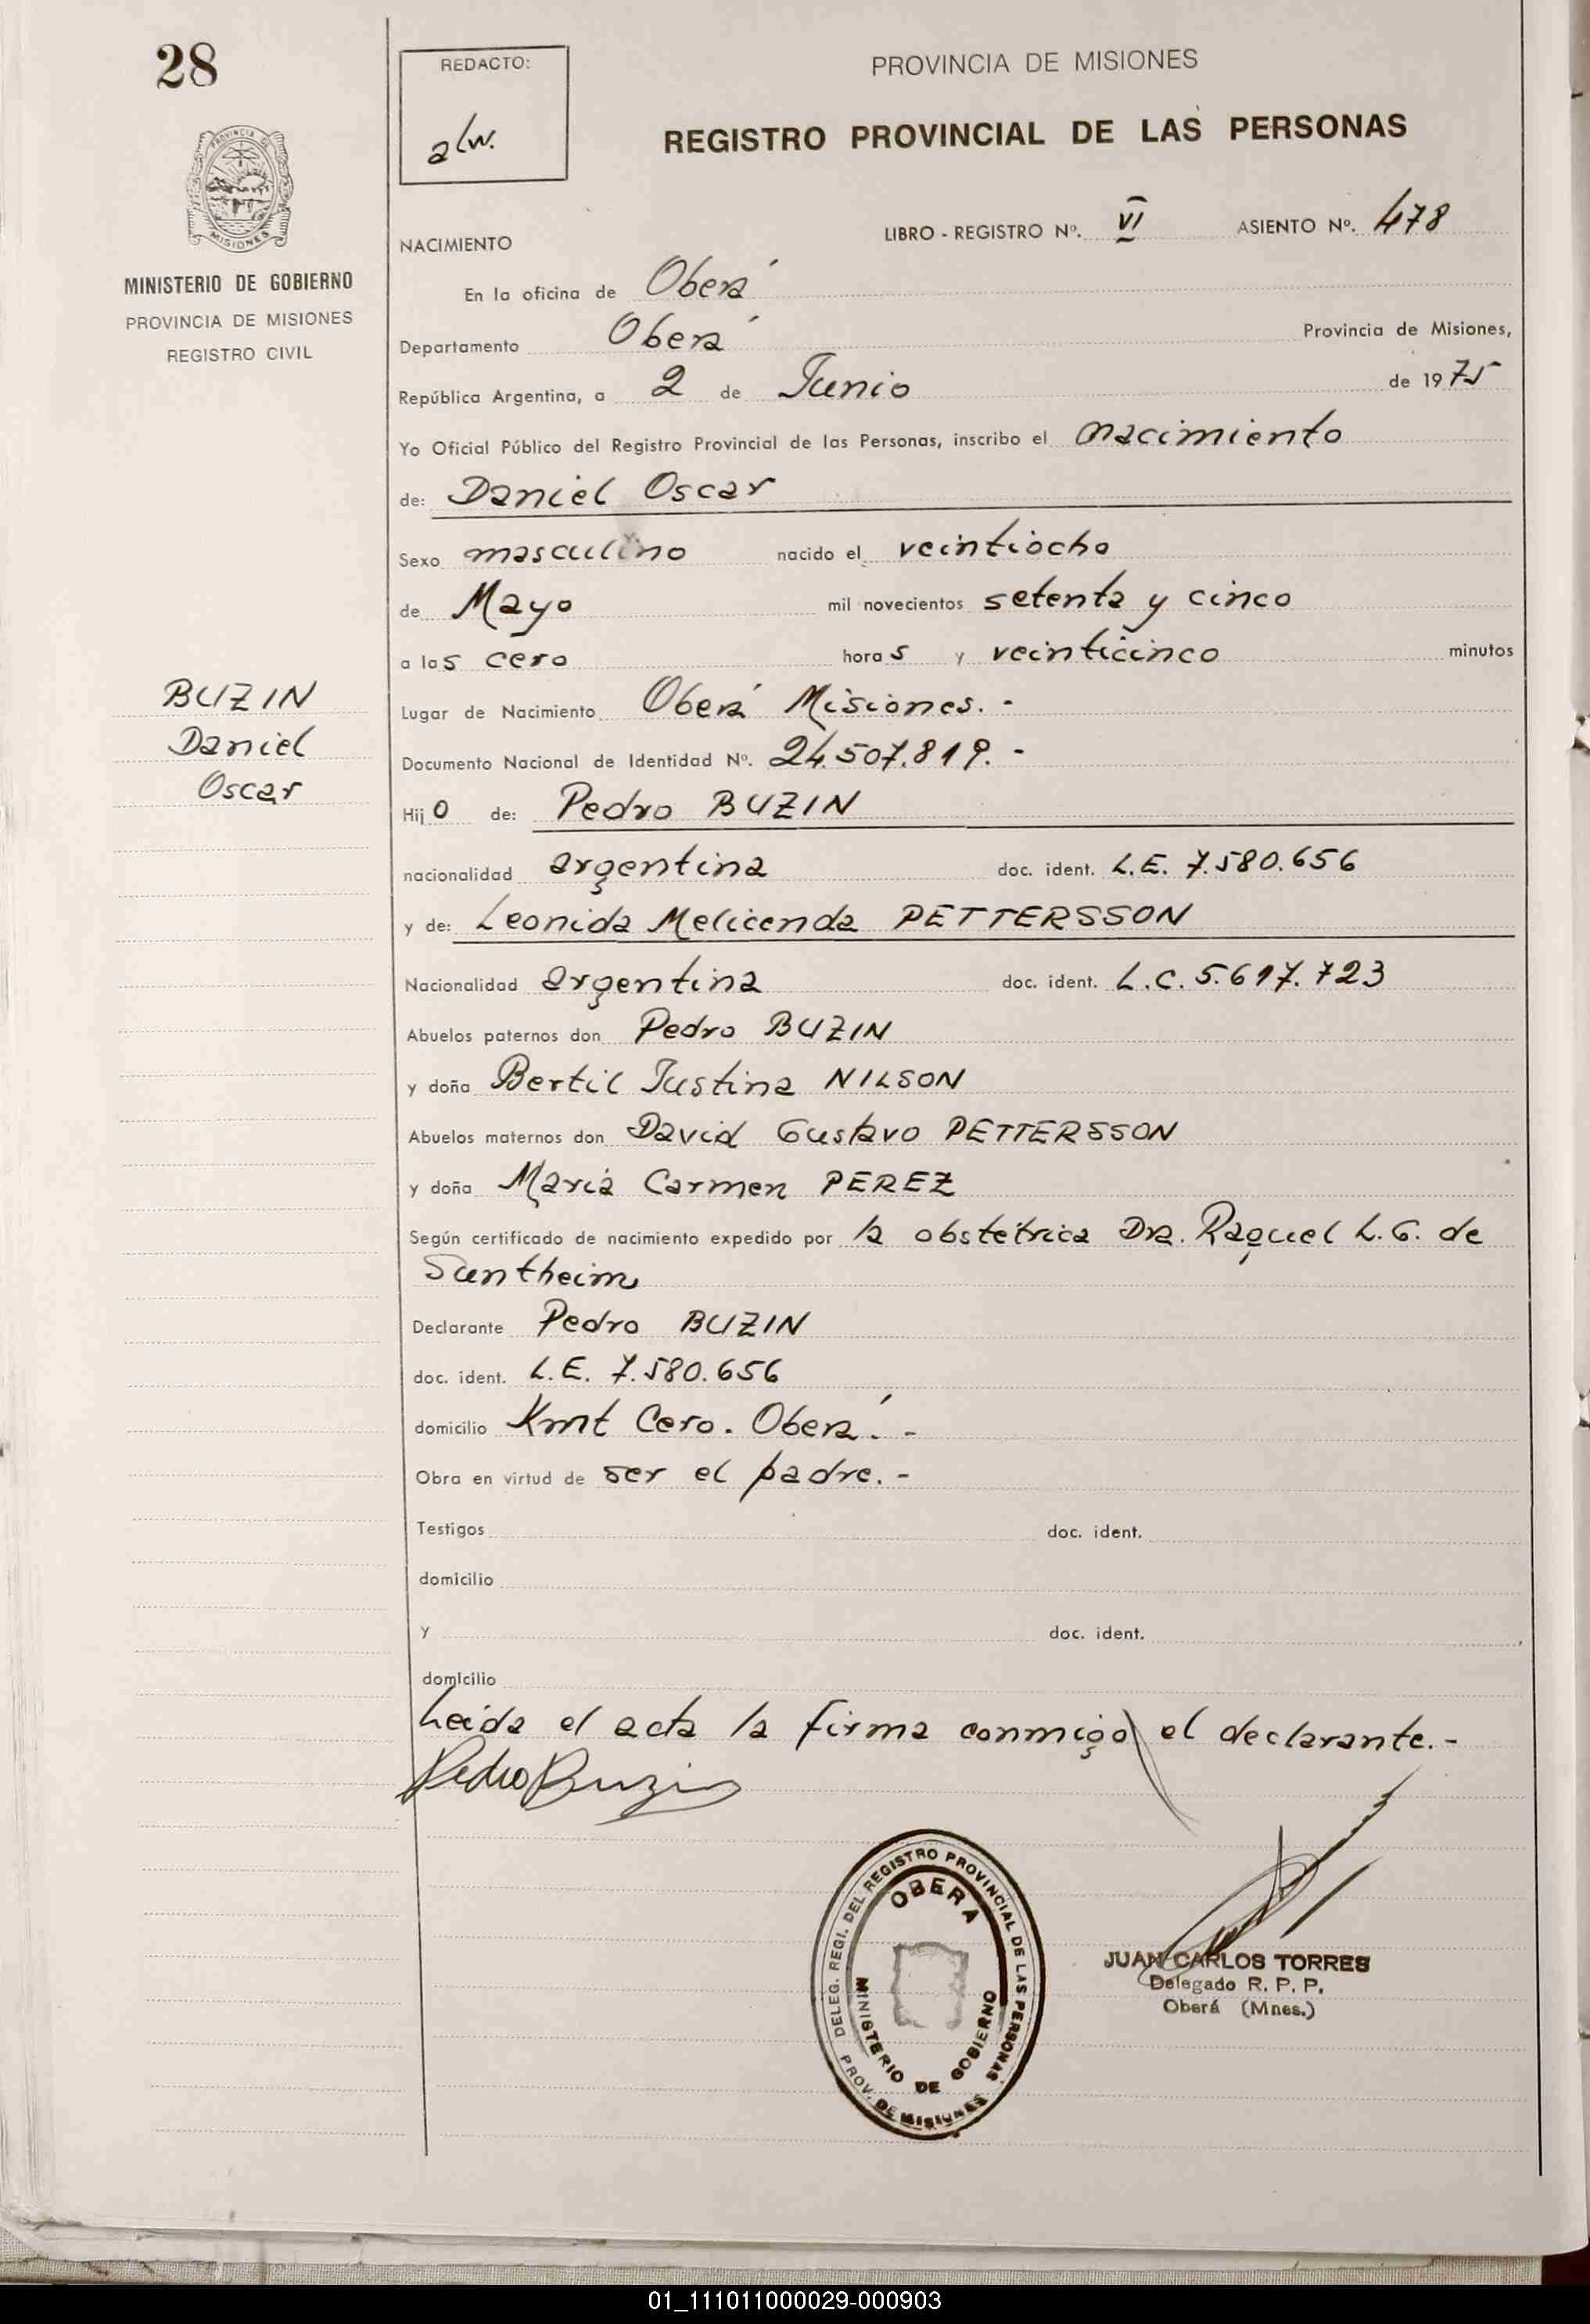 28
REDACTO:
alw.
PROVINCIA DE MISIONES
REGISTRO PROVINCIAL DE LAS PERSONAS
PROVINCIA DE
MISIONES
MINISTERIO DE GOBIERNO
PROVINCIA DE MISIONES
REGISTRO CIVIL
LIBRO - REGISTRO Nº. VI ASIENTO Nº. 478
NACIMIENTO
En la oficina de Oberá
Departamento Oberá Provincia de Misiones,
República Argentina, a 2 de Junio de 1975
Yo Oficial Público del Registro Provincial de las Personas, inscribo el nacimiento
de: Daniel Oscar
Sexo masculino nacido el veintiocho
de Mayo mil novecientos setenta y cinco
a las cero horas y veinticinco minutos
BUZIN
Daniel
Oscar
Lugar de Nacimiento Oberá Misiones. -
Documento Nacional de Identidad Nº. 24.507.819. -
Hijo de: Pedro BUZIN
nacionalidad argentina doc. ident. L.E. 7.580.656
y de: Leonida Melicenda PETTERSSON
Nacionalidad argentina doc. ident. L.C. 5.617.723
Abuelos paternos don Pedro BUZIN
y doña Bertil Justina NILSON
Abuelos maternos don David Gustavo PETTERSSON
y doña María Carmen PEREZ
Según certificado de nacimiento expedido por la obstétrica Dra. Raquel L.G. de
Suntheim
Declarante Pedro BUZIN
doc. ident. L.E. 7.580.656
domicilio Kmt Cero. Oberá. -
Obra en virtud de ser el padre. -
Testigos doc. ident.
domicilio
y doc. ident.
domicilio
Leida el acta la firma conmigo el declarante. -
Pedro Buzin
DELEG. REGI. DEL REGISTRO PROVINCIAL DE LAS PERSONAS
PROV. DE MISIONES
OBERA
MINISTERIO DE GOBIERNO
JUAN CARLOS TORRES
Delegado R. P. P.
Oberá (Mnes.)
01_111011000029-000903